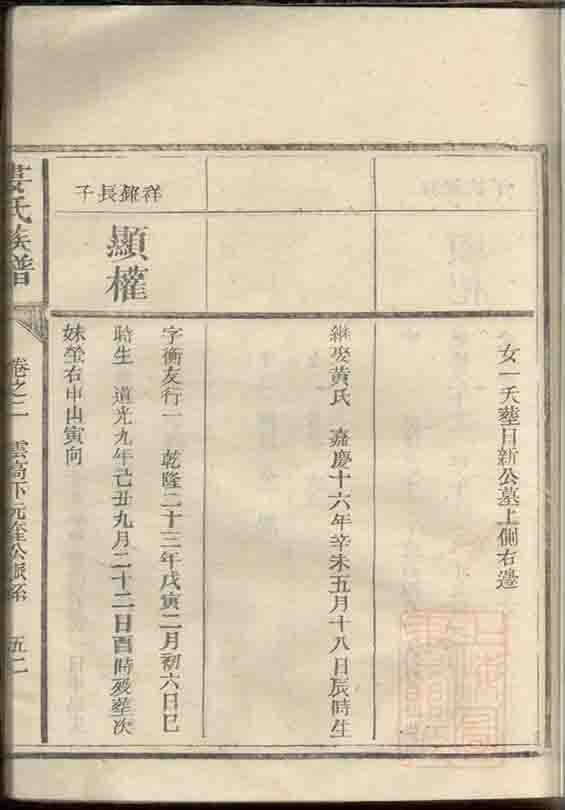 女一夭葬日新公墓上側右邊
繼娶黃氏　嘉慶十六年辛未五月十八日辰時生
祥鏦長子
顯權
字衡友行一　乾隆二十三年戊寅二月初六日巳
時生　道光九年己丑九月二十二日酉時歿葬次
妹塋右申山寅向
氏族譜
卷之二　雲高下元奎公派系　五二